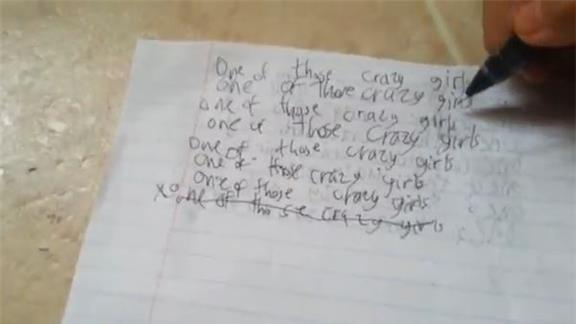 One of those crazy girls
one of those crazy girls
one of those crazy girls
one of those crazy girls
one of those crazy girls
one of those crazy girls
one of those crazy girls
xo one of those crazy girls